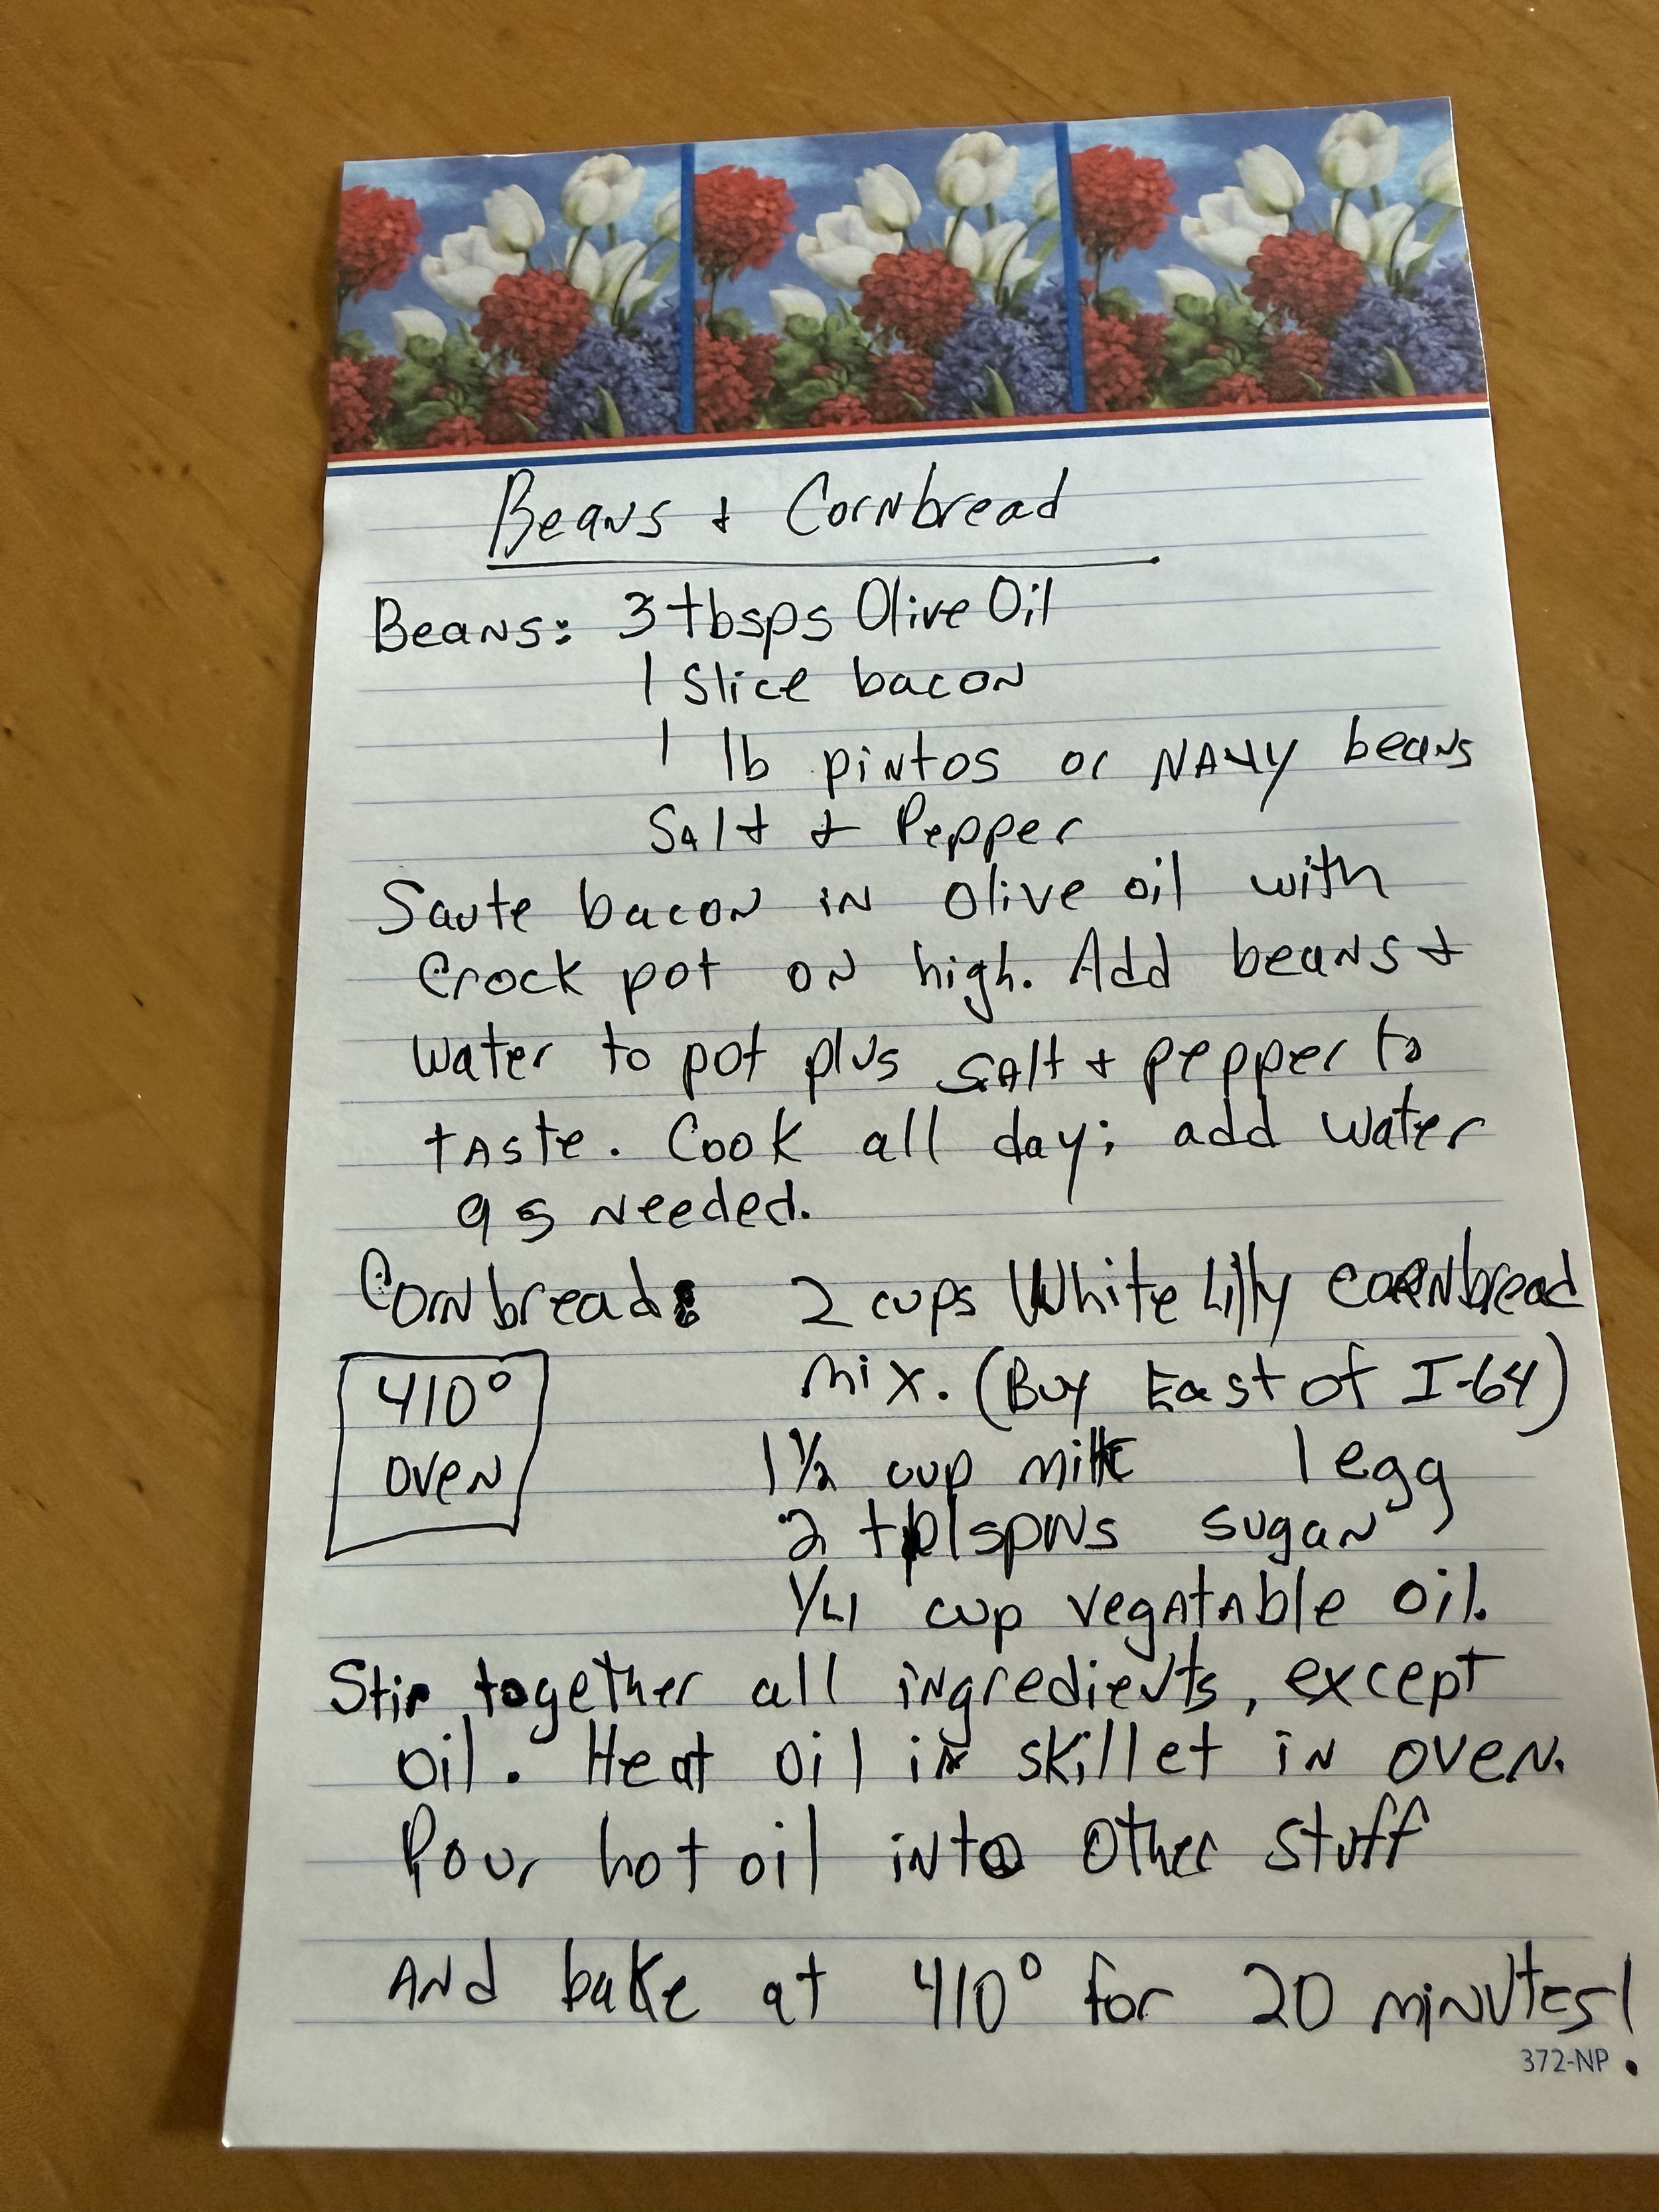 Beans + Cornbread
Beans: 3 tbsps Olive Oil
1 Slice bacon
1 lb pintos or NAVY beans
Salt + Pepper
Saute bacon in olive oil with
Crock pot on high. Add beans +
water to pot plus salt + pepper to
taste. Cook all day; add water
as needed.
Cornbread: 2 cups White Lilly cornbread
mix. (Buy East of I-64)
410°
oven
1 1/2 cup milk 1 egg
2 tblspns sugar
1/4 cup vegatable oil.
Stir together all ingredients, except
oil. Heat oil in skillet in oven.
Pour hot oil into other stuff
And bake at 410° for 20 minutes!
372-NP